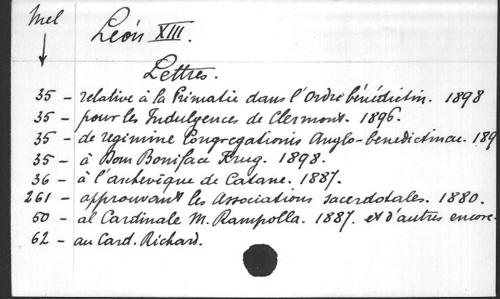 Mel
Léon XIII.
Lettres.
35 - relative à la Primatie dans l'Ordre bénédictin. 1898
35 - pour les Indulgences de Clermont. 1896.
35 - de regimine Congregationis Anglo-benedictinae. 189
35 - à Dom Boniface Krug. 1898.
36 - à l'archevêque de Catane. 1887.
261 - approuvant les Associations sacerdotales. 1880.
50 - al Cardinale M. Rampolla. 1887. et d'autres encore.
62 - au Card. Richard.